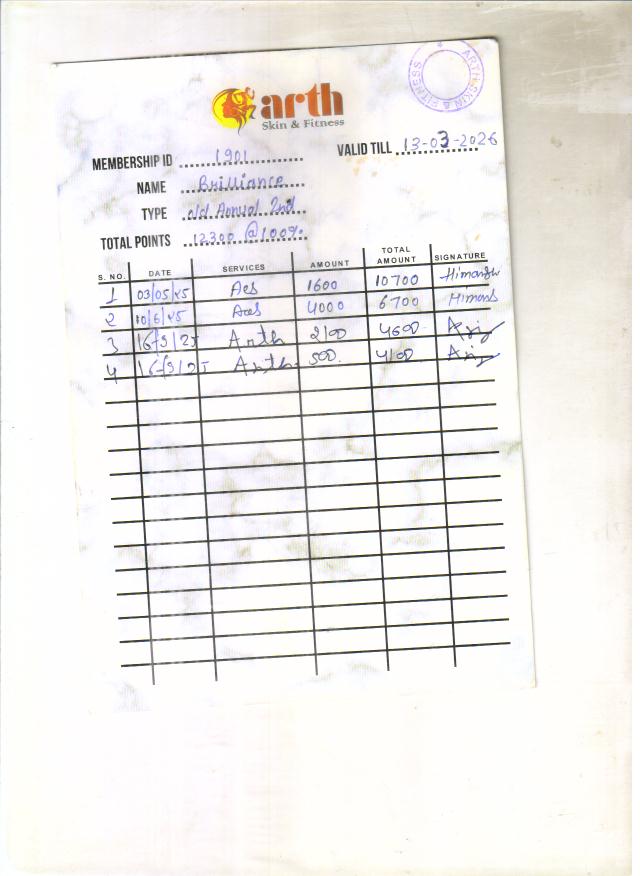 ARTH SKIN & FITNESS
arth
Skin & Fitness
MEMBERSHIP ID 1901
VALID TILL 13-03-2026
NAME Brilliance
TYPE old Annual 2nd
TOTAL POINTS 12300 @100%
S. NO. DATE SERVICES AMOUNT TOTAL AMOUNT SIGNATURE
1 03/05/25 Aes 1600 10700 Himanshu
2 10/6/25 Aes 4000 6700 Himans
3 16/9/25 Arth 2100 4600
4 16/9/25 Arth 500 4100